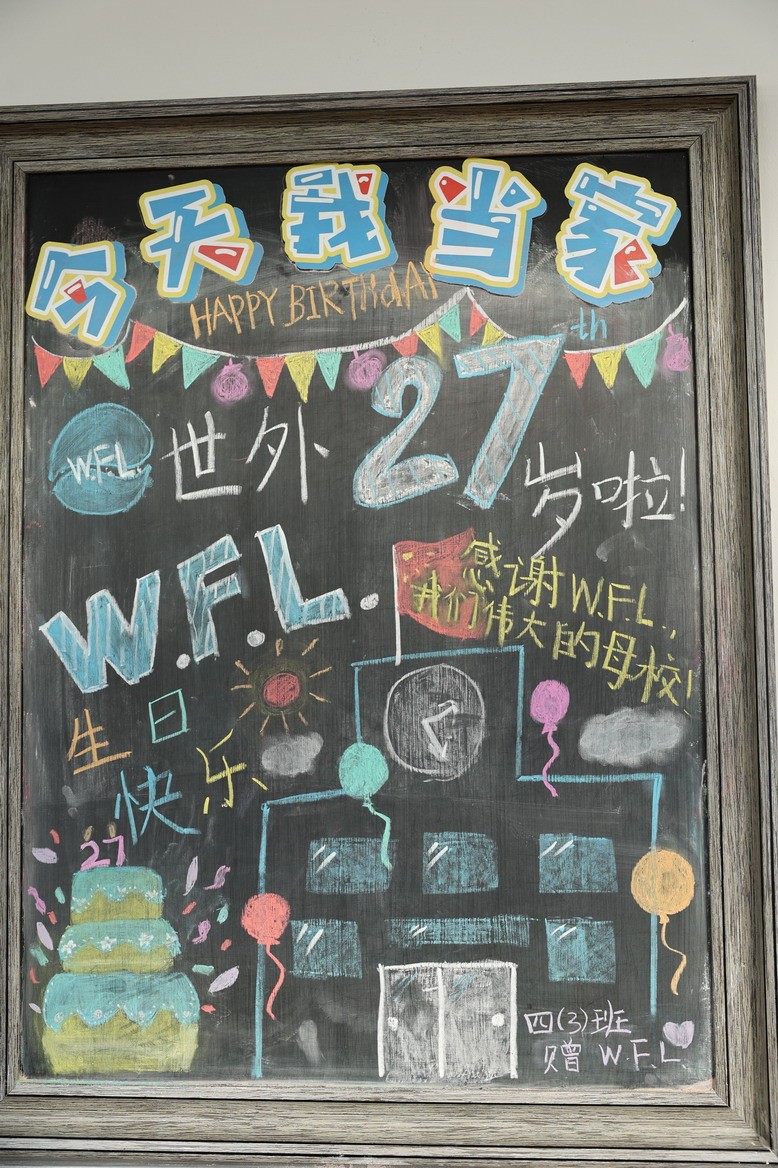 今天我当家
HAPPY BIRTHdAY
W.F.L. 世外 27th 岁啦!
W.F.L.
感谢W.F.L.,
我们伟大的母校!
生日
快乐
27
四(3)班
赠 W.F.L.